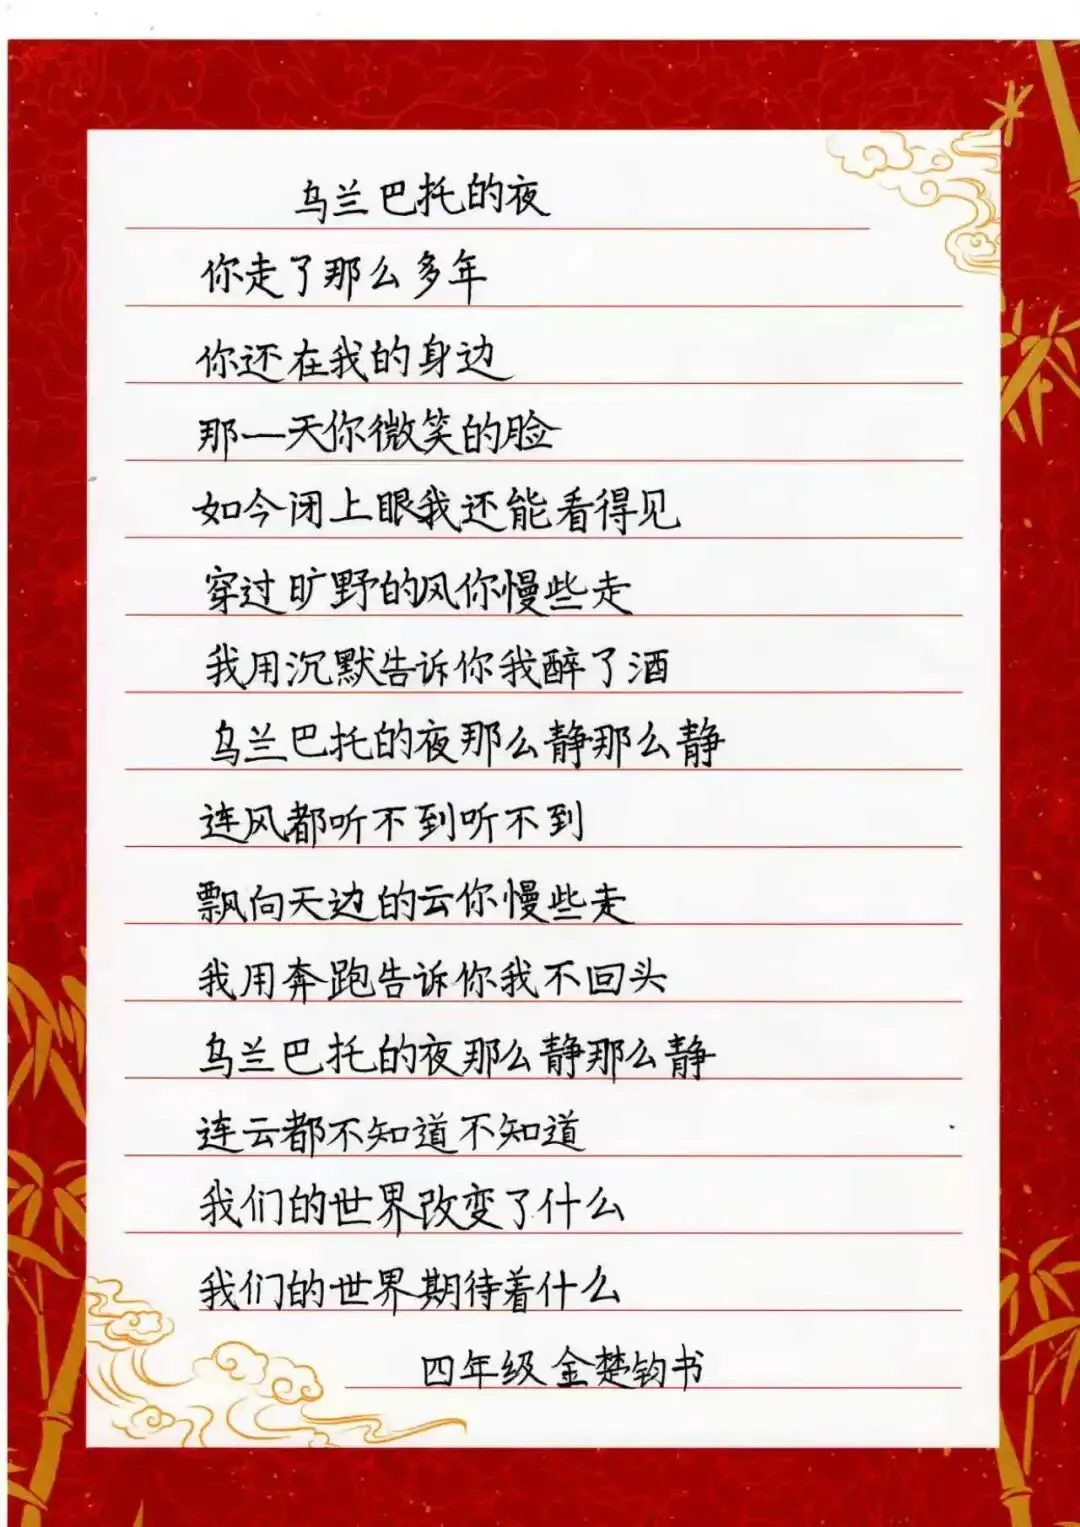 乌兰巴托的夜
你走了那么多年
你还在我的身边
那一天你微笑的脸
如今闭上眼我还能看得见
穿过旷野的风你慢些走
我用沉默告诉你我醉了酒
乌兰巴托的夜那么静那么静
连风都听不到听不到
飘向天边的云你慢些走
我用奔跑告诉你我不回头
乌兰巴托的夜那么静那么静
连云都不知道不知道
我们的世界改变了什么
我们的世界期待着什么
四年级金楚钧书